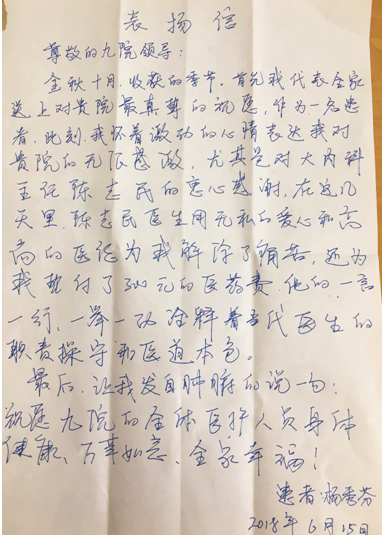 表扬信
尊敬的九院领导：
金秋十月，收获的季节，首先我代表全家
送上对贵院最真挚的祝愿，作为一名患
者，此刻，我怀着激动的心情表达我对
贵院的无限感激，尤其是对大内科
主任陈志民的衷心感谢，在这几
天里，陈志民医生用无私的爱心和高
尚的医德为我解除了病苦，还为
我垫付了300元的医药费，他的一言
一行，一举一动诠释着当代医生的
职责操守和医道本色。
最后，让我发自肺腑的说一句：
祝愿九院的全体医护人员身体
健康、万事如意、全家幸福！
患者：杨秀芬
2018年6月15日